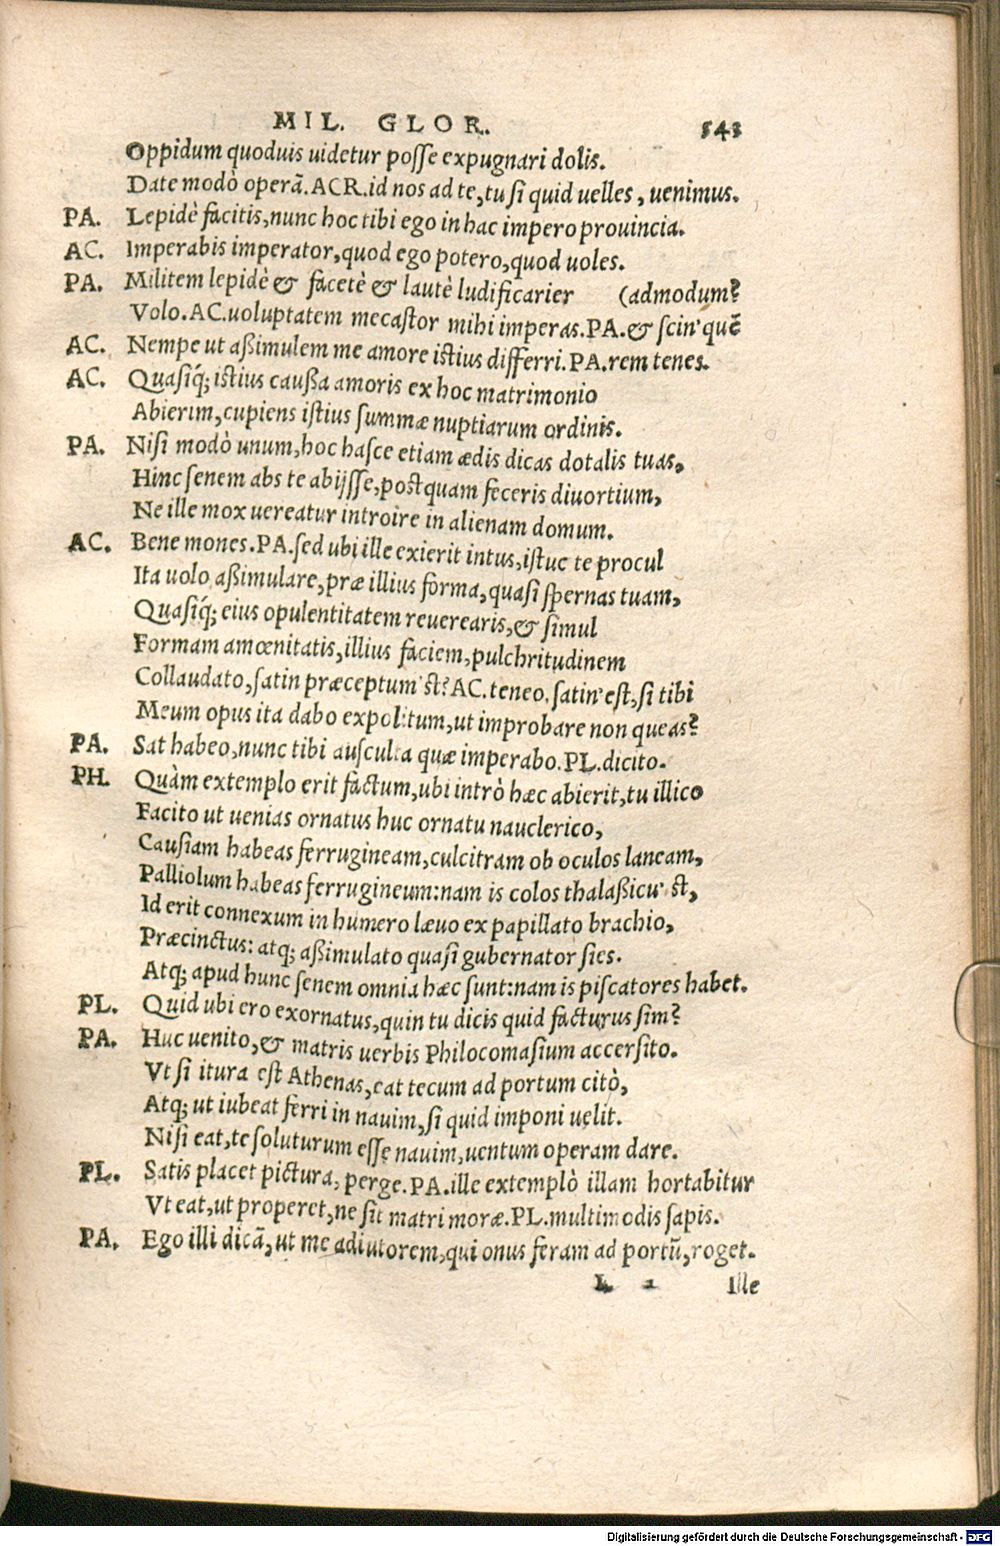 MIL. GLOR. 543
Oppidum quoduis uidetur posse expugnari dolis.
Date modò operã. ACR. id nos ad te, tu si quid uelles, uenimus.
PA. Lepidè facitis, nunc hoc tibi ego in hac impero prouincia.
AC. Imperabis imperator, quod ego potero, quod uoles.
PA. Militem lepidè & facetè & lautè ludificarier (admodum?
Volo. AC. uoluptatem mecastor mihi imperas. PA. & scin' quẽ
AC. Nempe ut aßimulem me amore istius differri. PA. rem tenes.
AC. Quasiq́; istius caußa amoris ex hoc matrimonio
Abierim, cupiens istius summæ nuptiarum ordinis.
PA. Nisi modò unum, hoc hasce etiam ædis dicas dotalis tuas,
Hinc senem abs te abijsse, postquam feceris diuortium,
Ne ille mox uereatur introire in alienam domum.
AC. Bene mones. PA. sed ubi ille exierit intus, istuc te procul
Ita uolo aßimulare, præ illius forma, quasi spernas tuam,
Quasiq́; eius opulentitatem reuerearis, & simul
Formam amœnitatis, illius faciem, pulchritudinem
Collaudato, satin præceptum 'st? AC. teneo. satin' est, si tibi
Meum opus ita dabo expolitum, ut improbare non queas?
PA. Sat habeo, nunc tibi ausculta quæ imperabo. PL. dicito.
PH. Quàm extemplo erit factum, ubi intrò hæc abierit, tu illico
Facito ut uenias ornatus huc ornatu nauclerico,
Causiam habeas ferrugineam, culcitram ob oculos laneam,
Palliolum habeas ferrugineum: nam is colos thalaßicu' st,
Id erit connexum in humero læuo ex papillato brachio,
Præcinctus: atq; aßimulato quasi gubernator sies.
Atq; apud hunc senem omnia hæc sunt: nam is piscatores habet.
PL. Quid ubi ero exornatus, quin tu dicis quid facturus sim?
PA. Huc uenito, & matris uerbis Philocomasium accersito.
Vt si itura est Athenas, eat tecum ad portum citò,
Atq; ut iubeat ferri in nauim, si quid imponi uelit.
Nisi eat, te soluturum esse nauim, uentum operam dare.
PL. Satis placet pictura, perge. PA. ille extemplò illam hortabitur
Vt eat, ut properet, ne sit matri moræ. PL. multimodis sapis.
PA. Ego illi dicã, ut me adiutorem, qui onus feram ad portũ, roget.
L 2 Ille
Digitalisierung gefördert durch die Deutsche Forschungsgemeinschaft - DFG